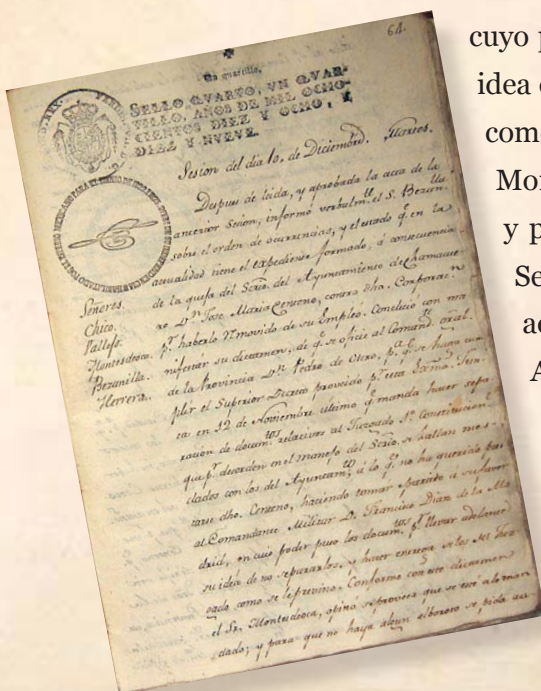 cuyo p
idea
com
Mo
y p
Se
a
A
64.
Un quartillo.
SELLO QVARTO, VN QVAR-
TILLO, AÑOS DE MIL OCHO-
CIENTOS DIEZ Y OCHO, Y
DIEZ Y NVEVE.
Sesion del dia 10. de Diciembre. Martes.
Despues de leida, y aprobada la acta de la
anterior Sesion, informó verbalmte. el S. Bezanlla.
sobre el orden de ocurrencias, y el estado q. en la
actualidad tiene el expediente formado, á consecuencia
de la quexa del Srio. del Ayuntamiento de Chamacue
ro Dn. Jose Maria Centeno, contra dha. Corporacn.
pr. haberlo removido de su Empleo. Concluió con ma
nifestar su dictamen, de q. se oficie al Comandte. Gral.
de la Provincia Dn. Pedro de Otero, pa. q. se haga cum
plir el Superior Decreto proveido pr. esta Exma. Jun
ta en 12 de Noviembre ultimo q. manda hacer sepa
racion de documtos. relativos al Juzgado
que pr. desorden en el manejo del Srio. se hallan mes-
clados con los del Ayuntamto. á lo q. no ha querido pres
tarse dho. Centeno, haciendo tomar partido á su favor
al Comandante Militar D. Francisco Diaz de la Ma
drid, en cuio poder puso los documtos. pa. llevar adelante
su idea de no separarlos, y hacer entrega
como se le previno. Conforme con este dictamen
el Sr. Montesdeoca, opinó se provea que se esté a lo man
dado; y para que no haya algun alboroto se pida au
Señores.
Chico.
Vallejo.
Montesdeoca.
Bezanilla.
Herrera.